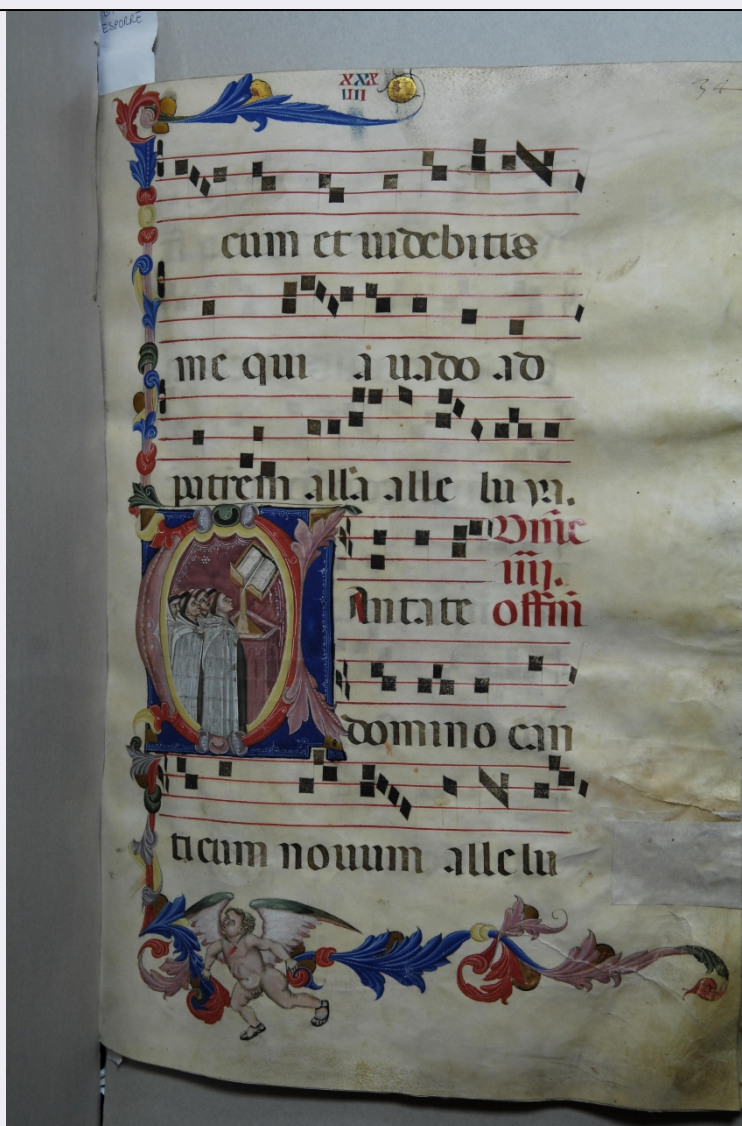 ESPORRE
XXX
IIII
34
cum et uidebitis
me qui a uado ad
patrem alla alle lu ya.
Dnice
iiij.
Antate offm
domino can
ticum nouum allelu